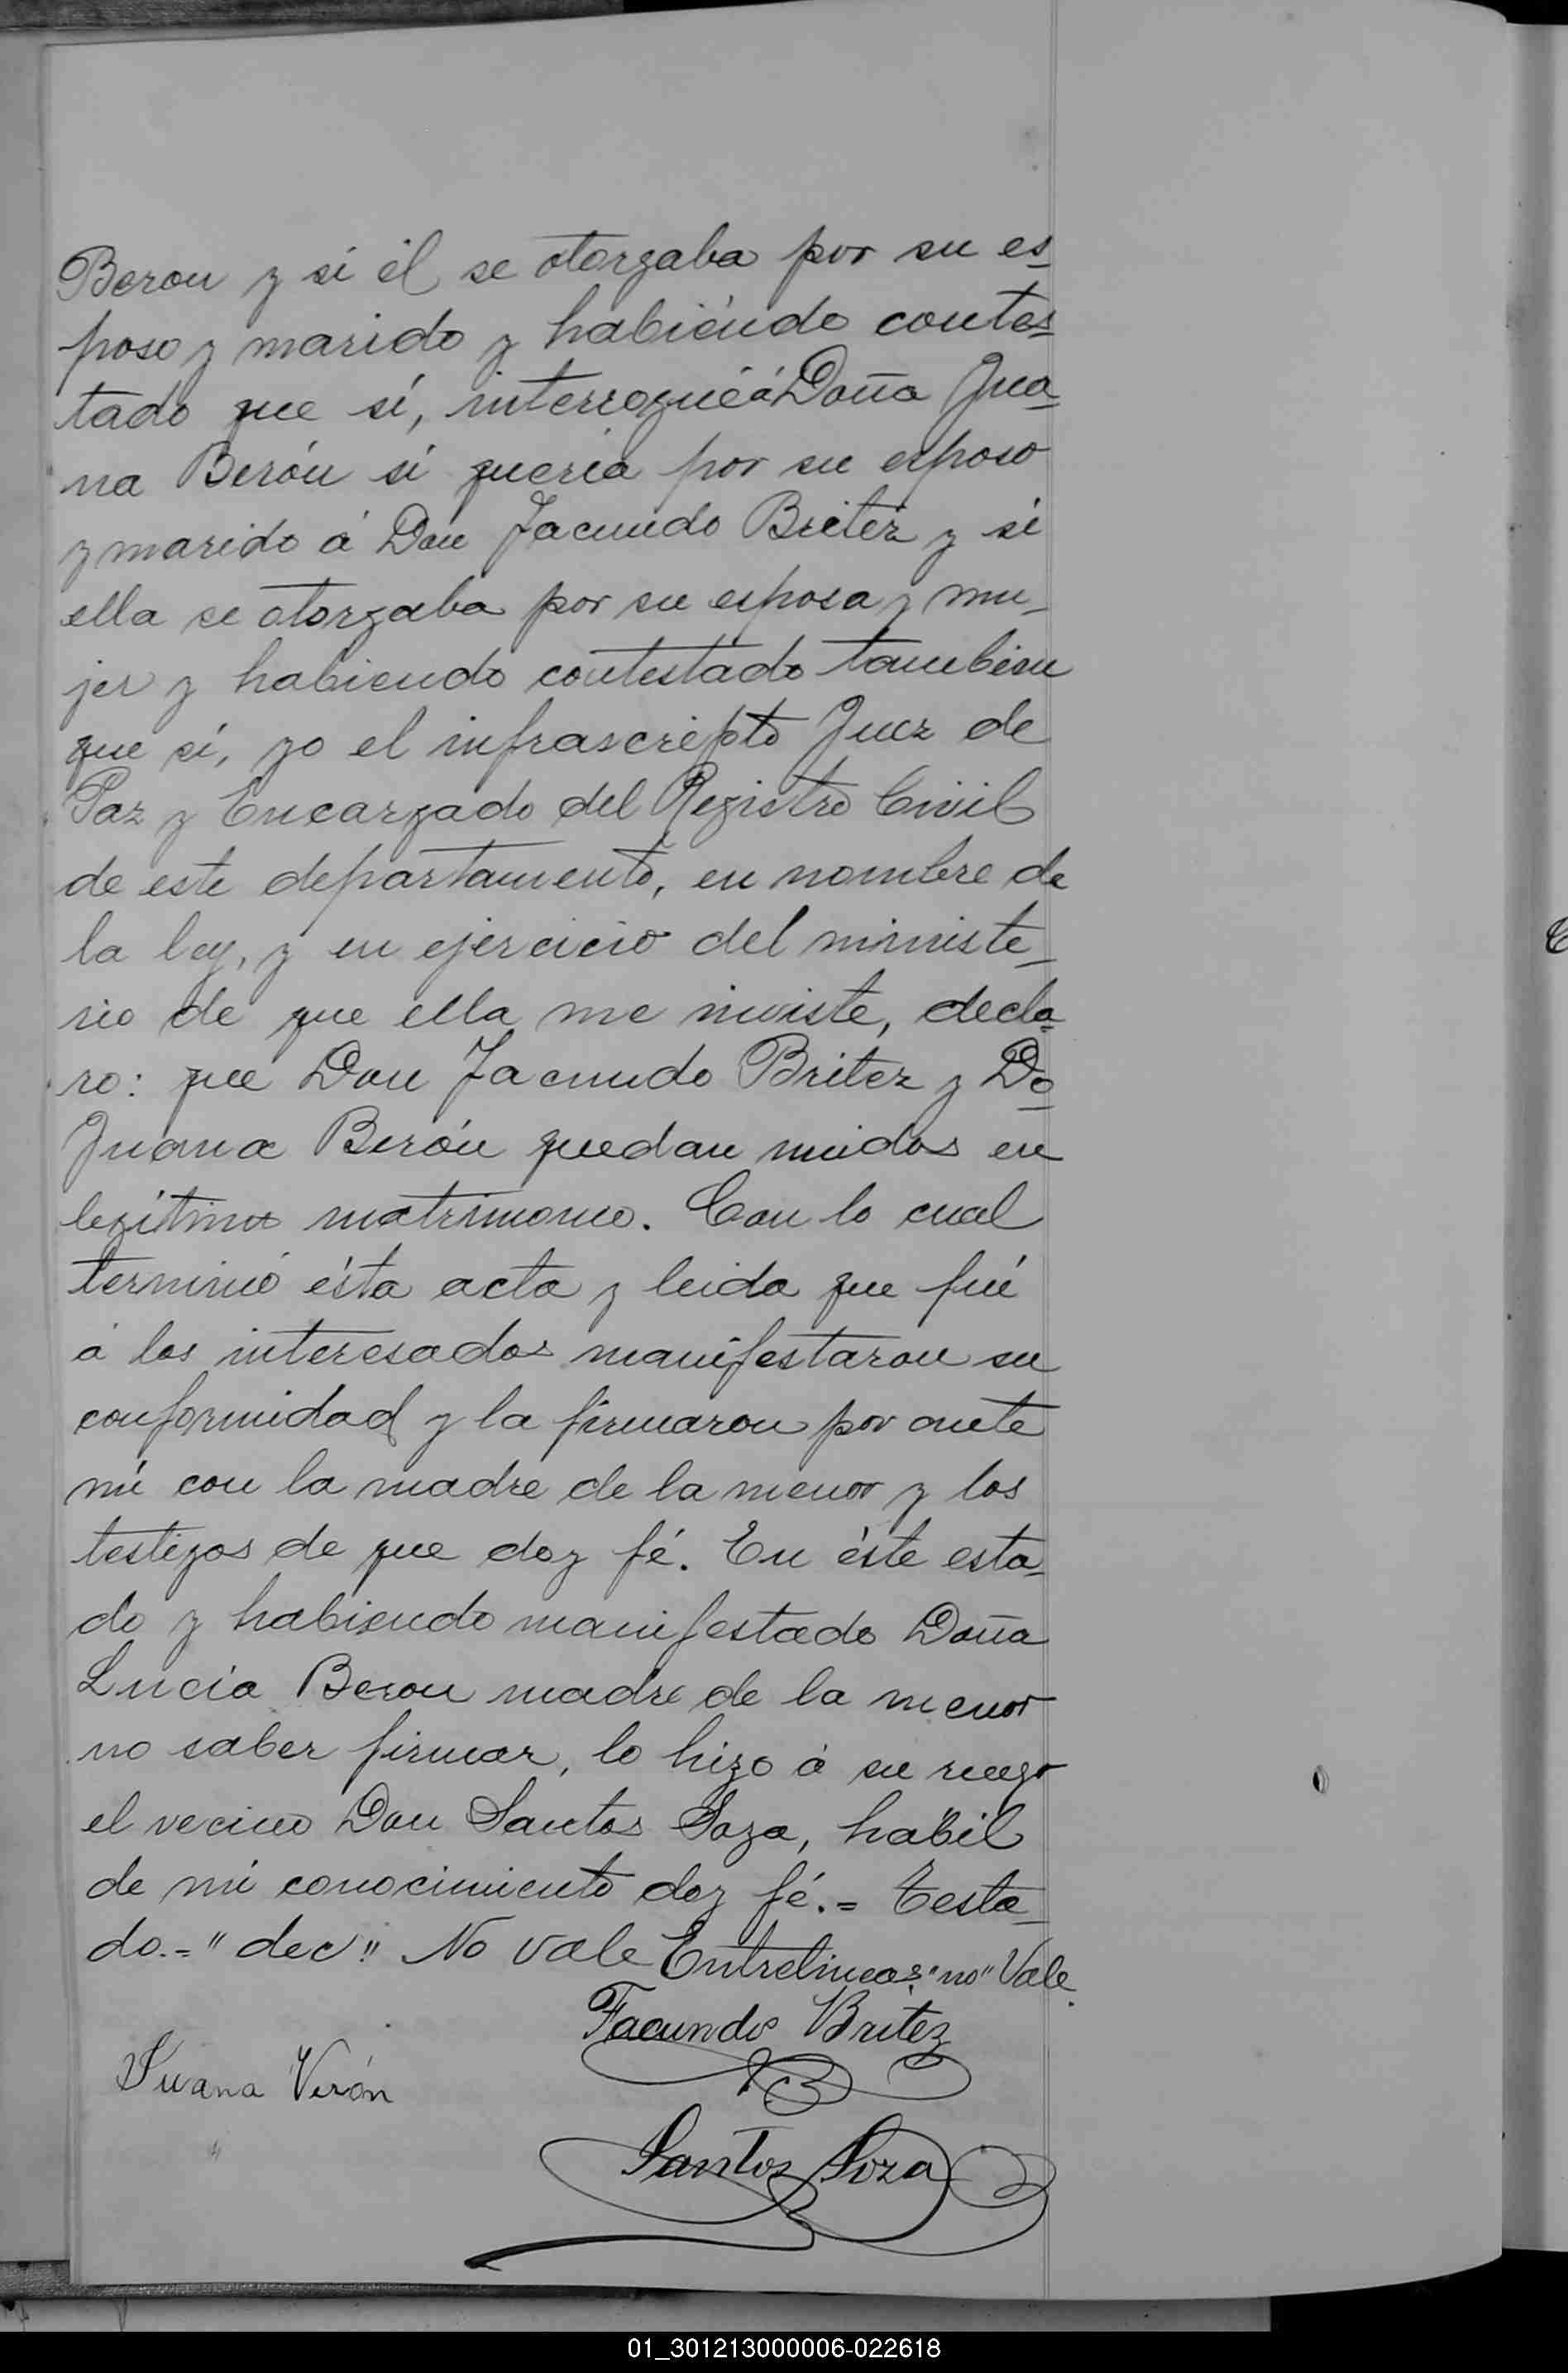 Beron y si él se otorgaba por su es-
poso y marido y habiéndo contes-
tado que sí, interrogué á Doña Jua-
na Berón si queria por su esposo
y marido á Don Facundo Britez y si
ella se otorgaba por su esposa y mu-
jer y habiendo contestado tambien
que sí, yo el infrascripto Juez de
Paz y Encargado del Registro Civil
de este departamento, en nombre de
la ley, y en ejercicio del ministe-
rio de que ella me inviste, decla-
ro: que Don Facundo Britez y Do-
Juana Berón quedan unidos en
legítimo matrimonio. Con lo cual
terminó ésta acta y leida que fué
á los interesados manifestaron su
conformidad y la firmaron por ante
mi con la madre de la menor y los
testigos de que doy fé. En éste esta-
do y habiendo manifestado Doña
Lucia Beron madre de la menor
no saber firmar, lo hizo á su ruego
el vecino Don Santos Soza, habil
de mi conocimiento doy fé.= Testa-
do.="dec" No vale Entrelineas "no" Vale.
Facundo Britez
Juana Verón
Santos Soza
01_301213000006-022618